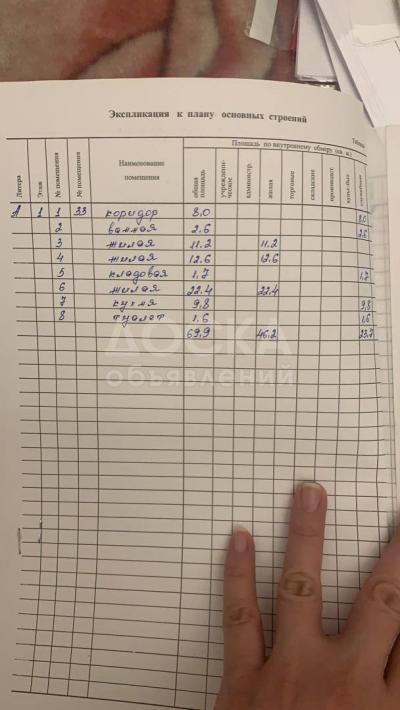 Экспликация к плану основных строений
Таблица
Площадь по внутреннему обмеру (кв. м.)
Литера
Этаж
№ помещения
№ помещения
Наименование помещения
общая площадь
учрежденческое
администр.
жилая
торговые
складские
производст.
культ-быт
А 1 1 33 коридор 8.0 8.0
2 ванная 2.6 2.6
3 жилая 11.2 11.2
4 жилая 12.6 12.6
5 кладовая 1.7 1.7
6 жилая 22.4 22.4
7 кухня 9.8 9.8
8 туалет 1.6 1.6
69.9 46.2 23.7
ДОСКА
объявлений